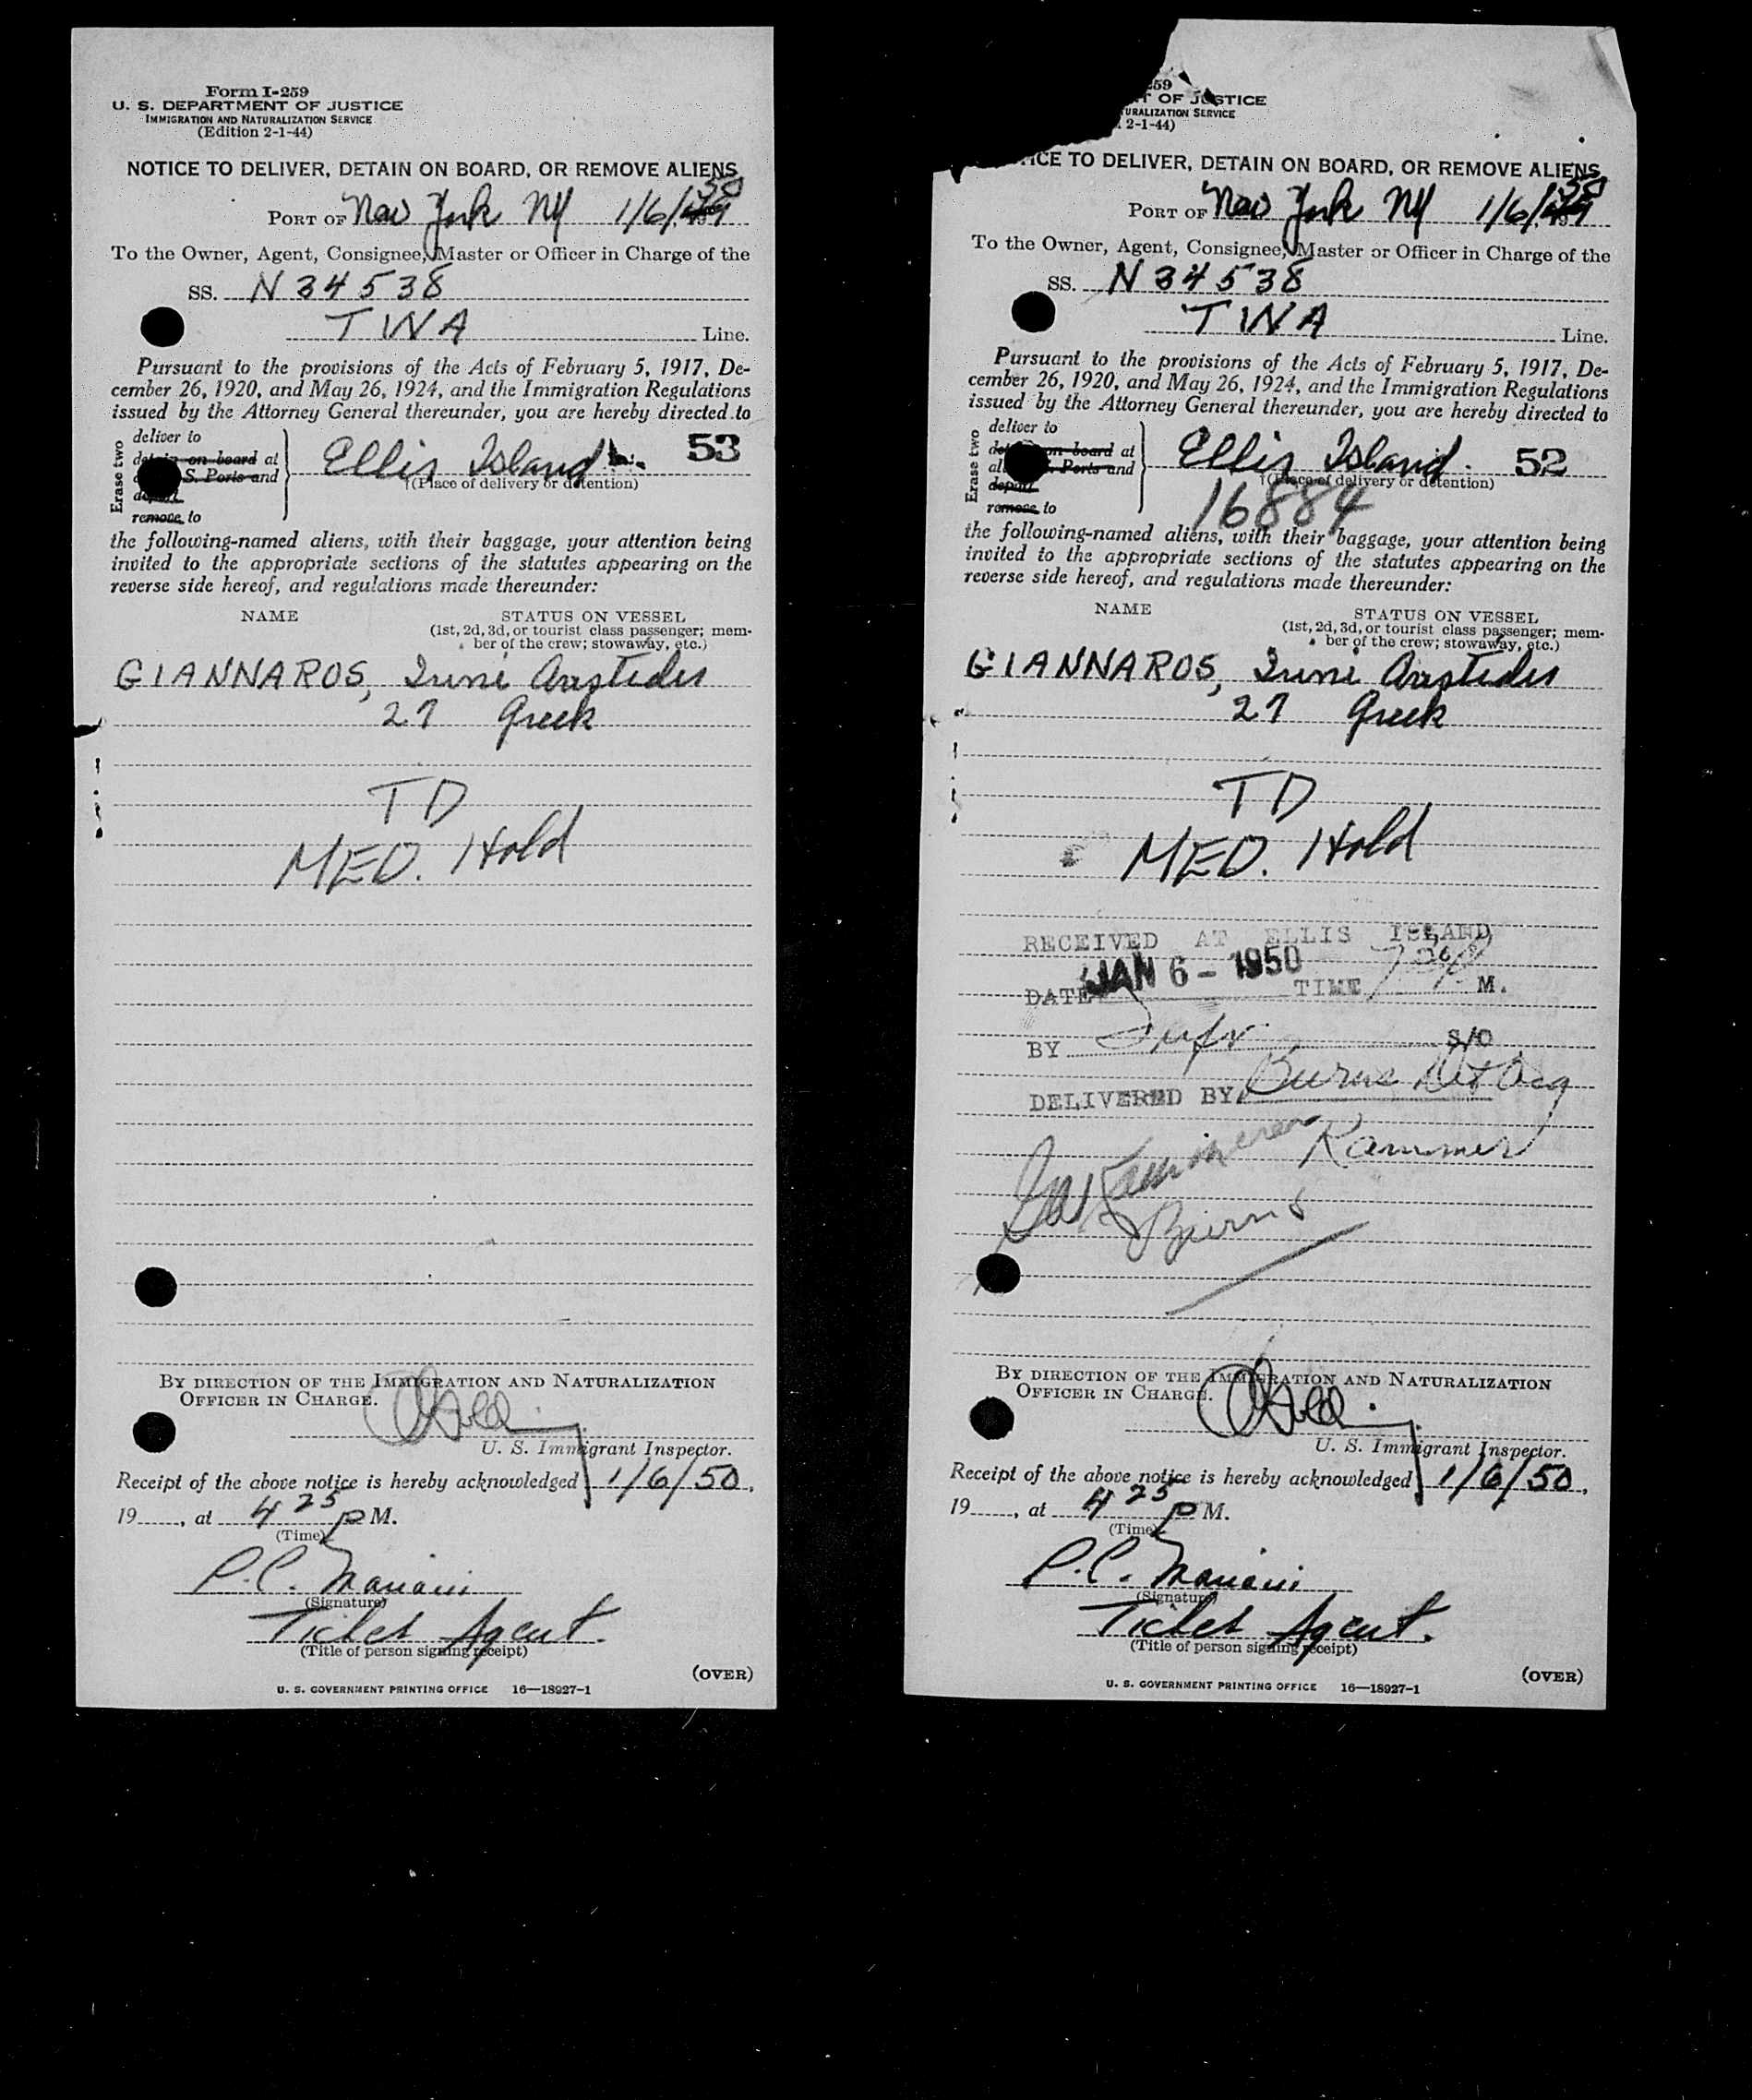 Form I-259
U. S. DEPARTMENT OF JUSTICE
IMMIGRATION AND NATURALIZATION SERVICE
(Edition 2-1-44)
NOTICE TO DELIVER, DETAIN ON BOARD, OR REMOVE ALIENS
PORT OF New York NY 1/6/50
To the Owner, Agent, Consignee, Master or Officer in Charge of the
SS. N 34538
TWA Line.
Pursuant to the provisions of the Acts of February 5, 1917, De-
cember 26, 1920, and May 26, 1924, and the Immigration Regulations
issued by the Attorney General thereunder, you are hereby directed to
Erase two
deliver to
on board at
S. Ports and
remove to
Ellis Island 53
(Place of delivery or detention)
the following-named aliens, with their baggage, your attention being
invited to the appropriate sections of the statutes appearing on the
reverse side hereof, and regulations made thereunder:
NAME STATUS ON VESSEL
(1st, 2d, 3d, or tourist class passenger; mem-
ber of the crew; stowaway, etc.)
GIANNAROS,
27 Greek
TD
MED. Hold
BY DIRECTION OF THE IMMIGRATION AND NATURALIZATION
OFFICER IN CHARGE.
U. S. Immigrant Inspector.
Receipt of the above notice is hereby acknowledged 1/6/50,
19 , at 4 25 P M.
(Time)
P.C.
(Signature)
Ticket Agent.
(Title of person signing receipt)
(OVER)
U. S. GOVERNMENT PRINTING OFFICE 16—18927-1
259
T OF JUSTICE
URALIZATION SERVICE
2-1-44)
ICE TO DELIVER, DETAIN ON BOARD, OR REMOVE ALIENS
PORT OF New York NY 1/6/50
To the Owner, Agent, Consignee, Master or Officer in Charge of the
SS. N 34538
TWA Line.
Pursuant to the provisions of the Acts of February 5, 1917, De-
cember 26, 1920, and May 26, 1924, and the Immigration Regulations
issued by the Attorney General thereunder, you are hereby directed to
Erase two
deliver to
on board at
Ports and
deport
remove to
Ellis Island 52
(Place of delivery or detention)
16884
the following-named aliens, with their baggage, your attention being
invited to the appropriate sections of the statutes appearing on the
reverse side hereof, and regulations made thereunder:
NAME STATUS ON VESSEL
(1st, 2d, 3d, or tourist class passenger; mem-
ber of the crew; stowaway, etc.)
GIANNAROS,
27 Greek
TD
MED. Hold
RECEIVED AT ELLIS ISLAND
DATE JAN 6 - 1950 TIME M.
BY S/O
DELIVERED BY Burns
Kammer
Burns
BY DIRECTION OF THE IMMIGRATION AND NATURALIZATION
OFFICER IN CHARGE.
U. S. Immigrant Inspector.
Receipt of the above notice is hereby acknowledged 1/6/50,
19 , at 4 25 P M.
(Time)
P.C.
(Signature)
Ticket Agent.
(Title of person signing receipt)
(OVER)
U. S. GOVERNMENT PRINTING OFFICE 16—18927-1